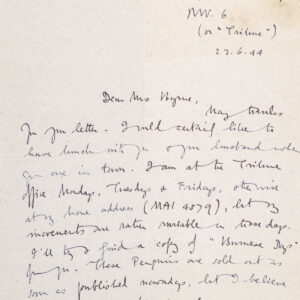 NW. 6
(or "Tribune")
23.6.44
Dear Mrs Byrne,
Many thanks
for your letter. I would certainly like to
have lunch with you & your husband when
you are in town. I am at the Tribune
office Mondays, Tuesdays & Fridays, otherwise
at my home address (MAI 4579), but my
movements are rather variable in these days.
I'll try & find a copy of "Burmese Days"
for you. These Penguins are sold out as
soon as published nowadays, but I believe